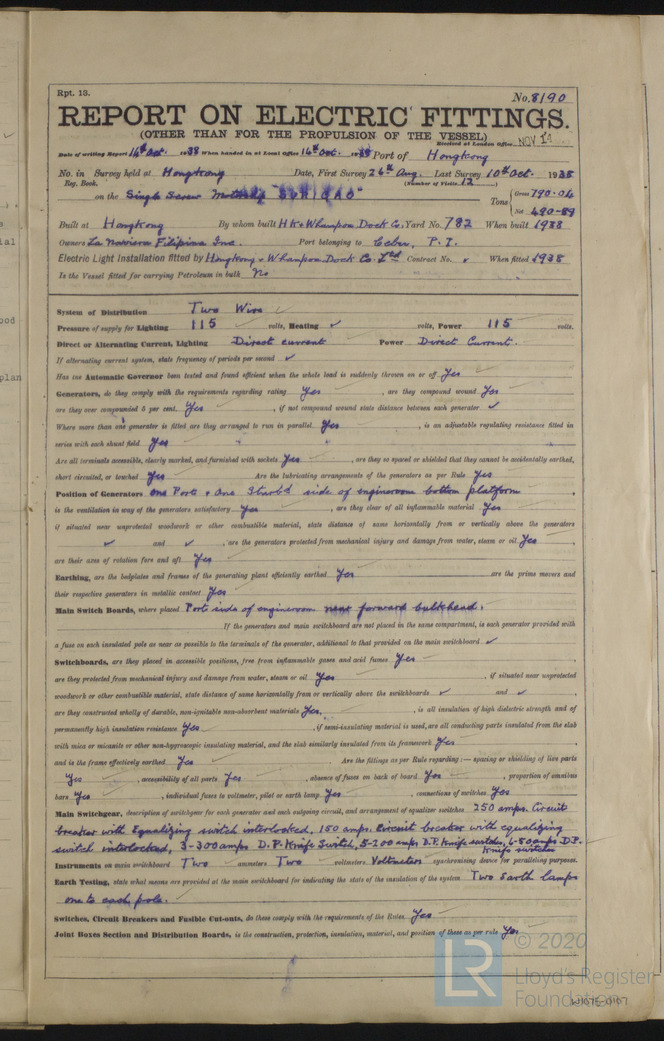 Rpt. 13.
No. 8190
REPORT ON ELECTRIC FITTINGS.
(OTHER THAN FOR THE PROPULSION OF THE VESSEL)
Received at London Office NOV 14
Date of writing Report 14th Oct. 1938 When handed in at Local Office 14th Oct. 1938 Port of Hongkong
No. in Survey held at Hongkong Date, First Survey 26th Aug. Last Survey 10th Oct. 1938
Reg. Book. (Number of Visits 12)
on the Single Screw Tons Gross 790.04
Net 490.89
Built at Hongkong By whom built HK & Whampoa Dock Co. Yard No. 782 When built 1938
Owners La Naviera Filipina Inc. Port belonging to Cebu, P. I.
Electric Light Installation fitted by Hongkong & Whampoa Dock Co. Ltd Contract No. When fitted 1938
Is the Vessel fitted for carrying Petroleum in bulk No
System of Distribution Two Wire
Pressure of supply for Lighting 115 volts, Heating ✓ volts, Power 115 volts.
Direct or Alternating Current, Lighting Direct current Power Direct Current.
If alternating current, state frequency of periods per second ✓
Has the Automatic Governor been tested and found efficient when the whole load is suddenly thrown on or off Yes
Generators, do they comply with the requirements regarding rating Yes, are they compound wound Yes
are they over compounded 5 per cent. Yes, if not compound wound state distance between each generator ✓
Where more than one generator is fitted are they arranged to run in parallel Yes, is an adjustable regulating resistance fitted in
series with each shunt field Yes
Are all terminals accessible, clearly marked, and furnished with sockets Yes, are they so spaced or shielded that they cannot be accidentally earthed,
short circuited, or touched Yes Are the lubricating arrangements of the generators as per Rule Yes
Position of Generators one Port & One Starb'd side of engineroom bottom platform
is the ventilation in way of the generators satisfactory Yes, are they clear of all inflammable material Yes
if situated near unprotected woodwork or other combustible material, state distance of same horizontally from or vertically above the generators
✓ and ✓, are the generators protected from mechanical injury and damage from water, steam or oil Yes,
are their axes of rotation fore and aft Yes
Earthing, are the bedplates and frames of the generating plant efficiently earthed Yes are the prime movers and
their respective generators in metallic contact Yes
Main Switch Boards, where placed Port side of engineroom near forward bulkhead.
If the generators and main switchboard are not placed in the same compartment, is each generator provided with
a fuse on each insulated pole as near as possible to the terminals of the generator, additional to that provided on the main switchboard ✓
Switchboards, are they placed in accessible positions, free from inflammable gases and acid fumes Yes,
are they protected from mechanical injury and damage from water, steam or oil Yes, if situated near unprotected
woodwork or other combustible material, state distance of same horizontally from or vertically above the switchboards ✓ and ✓,
are they constructed wholly of durable, non-ignitable non-absorbent materials Yes, is all insulation of high dielectric strength and of
permanently high insulation resistance Yes, if semi-insulating material is used, are all conducting parts insulated from the slab
with mica or micanite or other non-hygroscopic insulating material, and the slab similarly insulated from its framework Yes
and is the frame effectively earthed Yes Are the fittings as per Rule regarding:— spacing or shielding of live parts
Yes, accessibility of all parts Yes, absence of fuses on back of board Yes, proportion of omnibus
bars Yes, individual fuses to voltmeter, pilot or earth lamp Yes, connections of switches Yes
Main Switchgear, description of switchgear for each generator and each outgoing circuit, and arrangement of equalizer switches 250 amps. Circuit
breaker with Equalizing switch interlocked, 150 amps. Circuit breaker with equalizing
switch interlocked, 3-300amps D.P. Knife Switch, 5-200 amps D.P. Knife switches, 6-50 amps D.P.
Knife switches
Instruments on main switchboard Two ammeters Two voltmeters Voltmeters synchronising device for paralleling purposes.
Earth Testing, state what means are provided at the main switchboard for indicating the state of the insulation of the system Two Earth lamps
one to each pole.
Switches, Circuit Breakers and Fusible Cut-outs, do these comply with the requirements of the Rules Yes
Joint Boxes Section and Distribution Boards, is the construction, protection, insulation, material, and position of these as per rule Yes
© 2020
LR Lloyd's Register
Foundation
W1075-0107